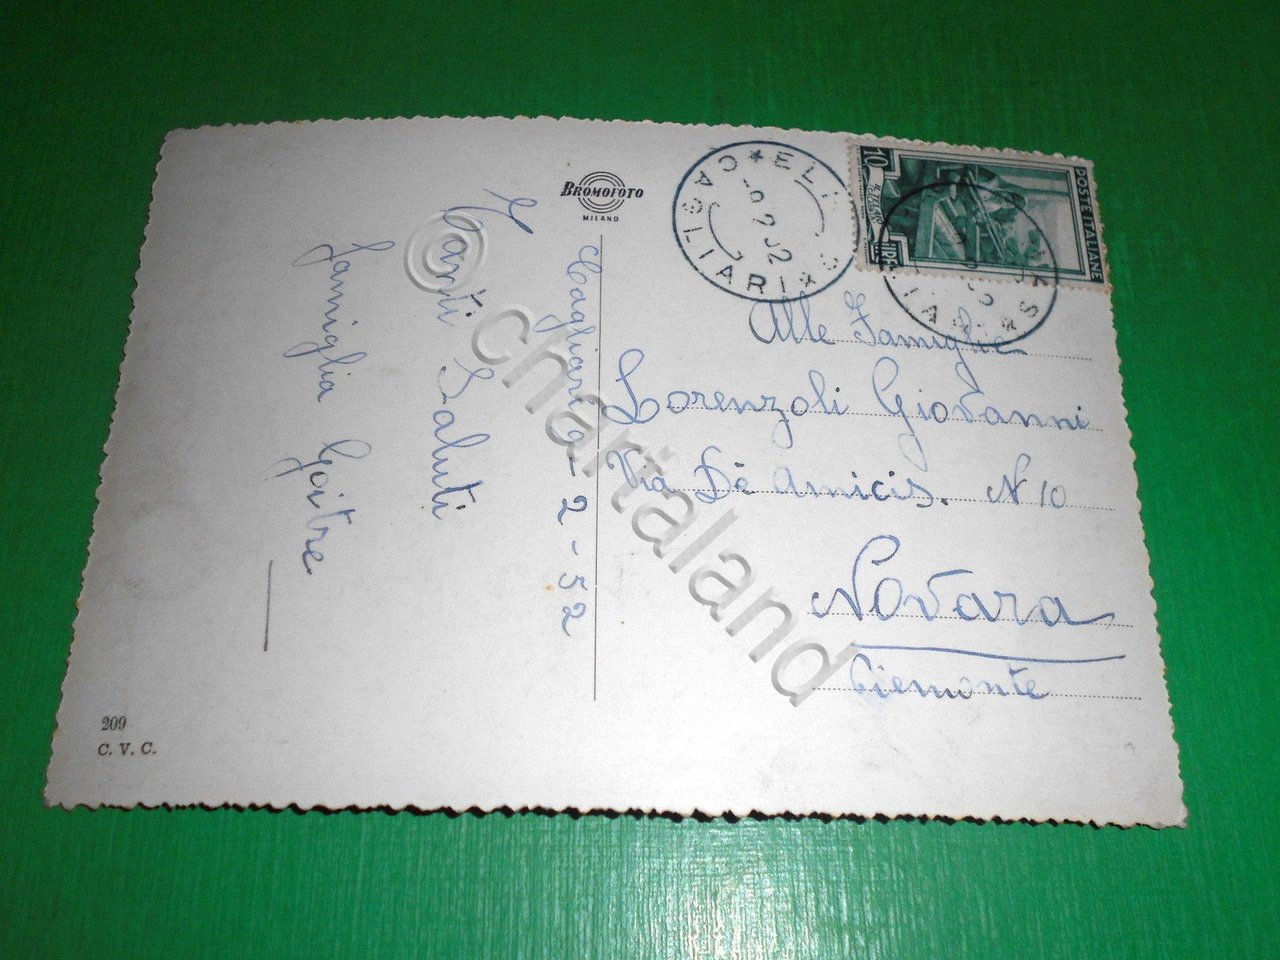 BROMOFOTO
MILANO
Cagliari 9-2-52
Tanti Saluti
Famiglia Goitre
ELMAS
CAGLIARI
POSTE ITALIANE
10
LIRE
Alle Famiglie
Lorenzoli Giovanni
Via Dè Amicis. N 10
Novara
Piemonte
209
C. V. C.
© chartaland